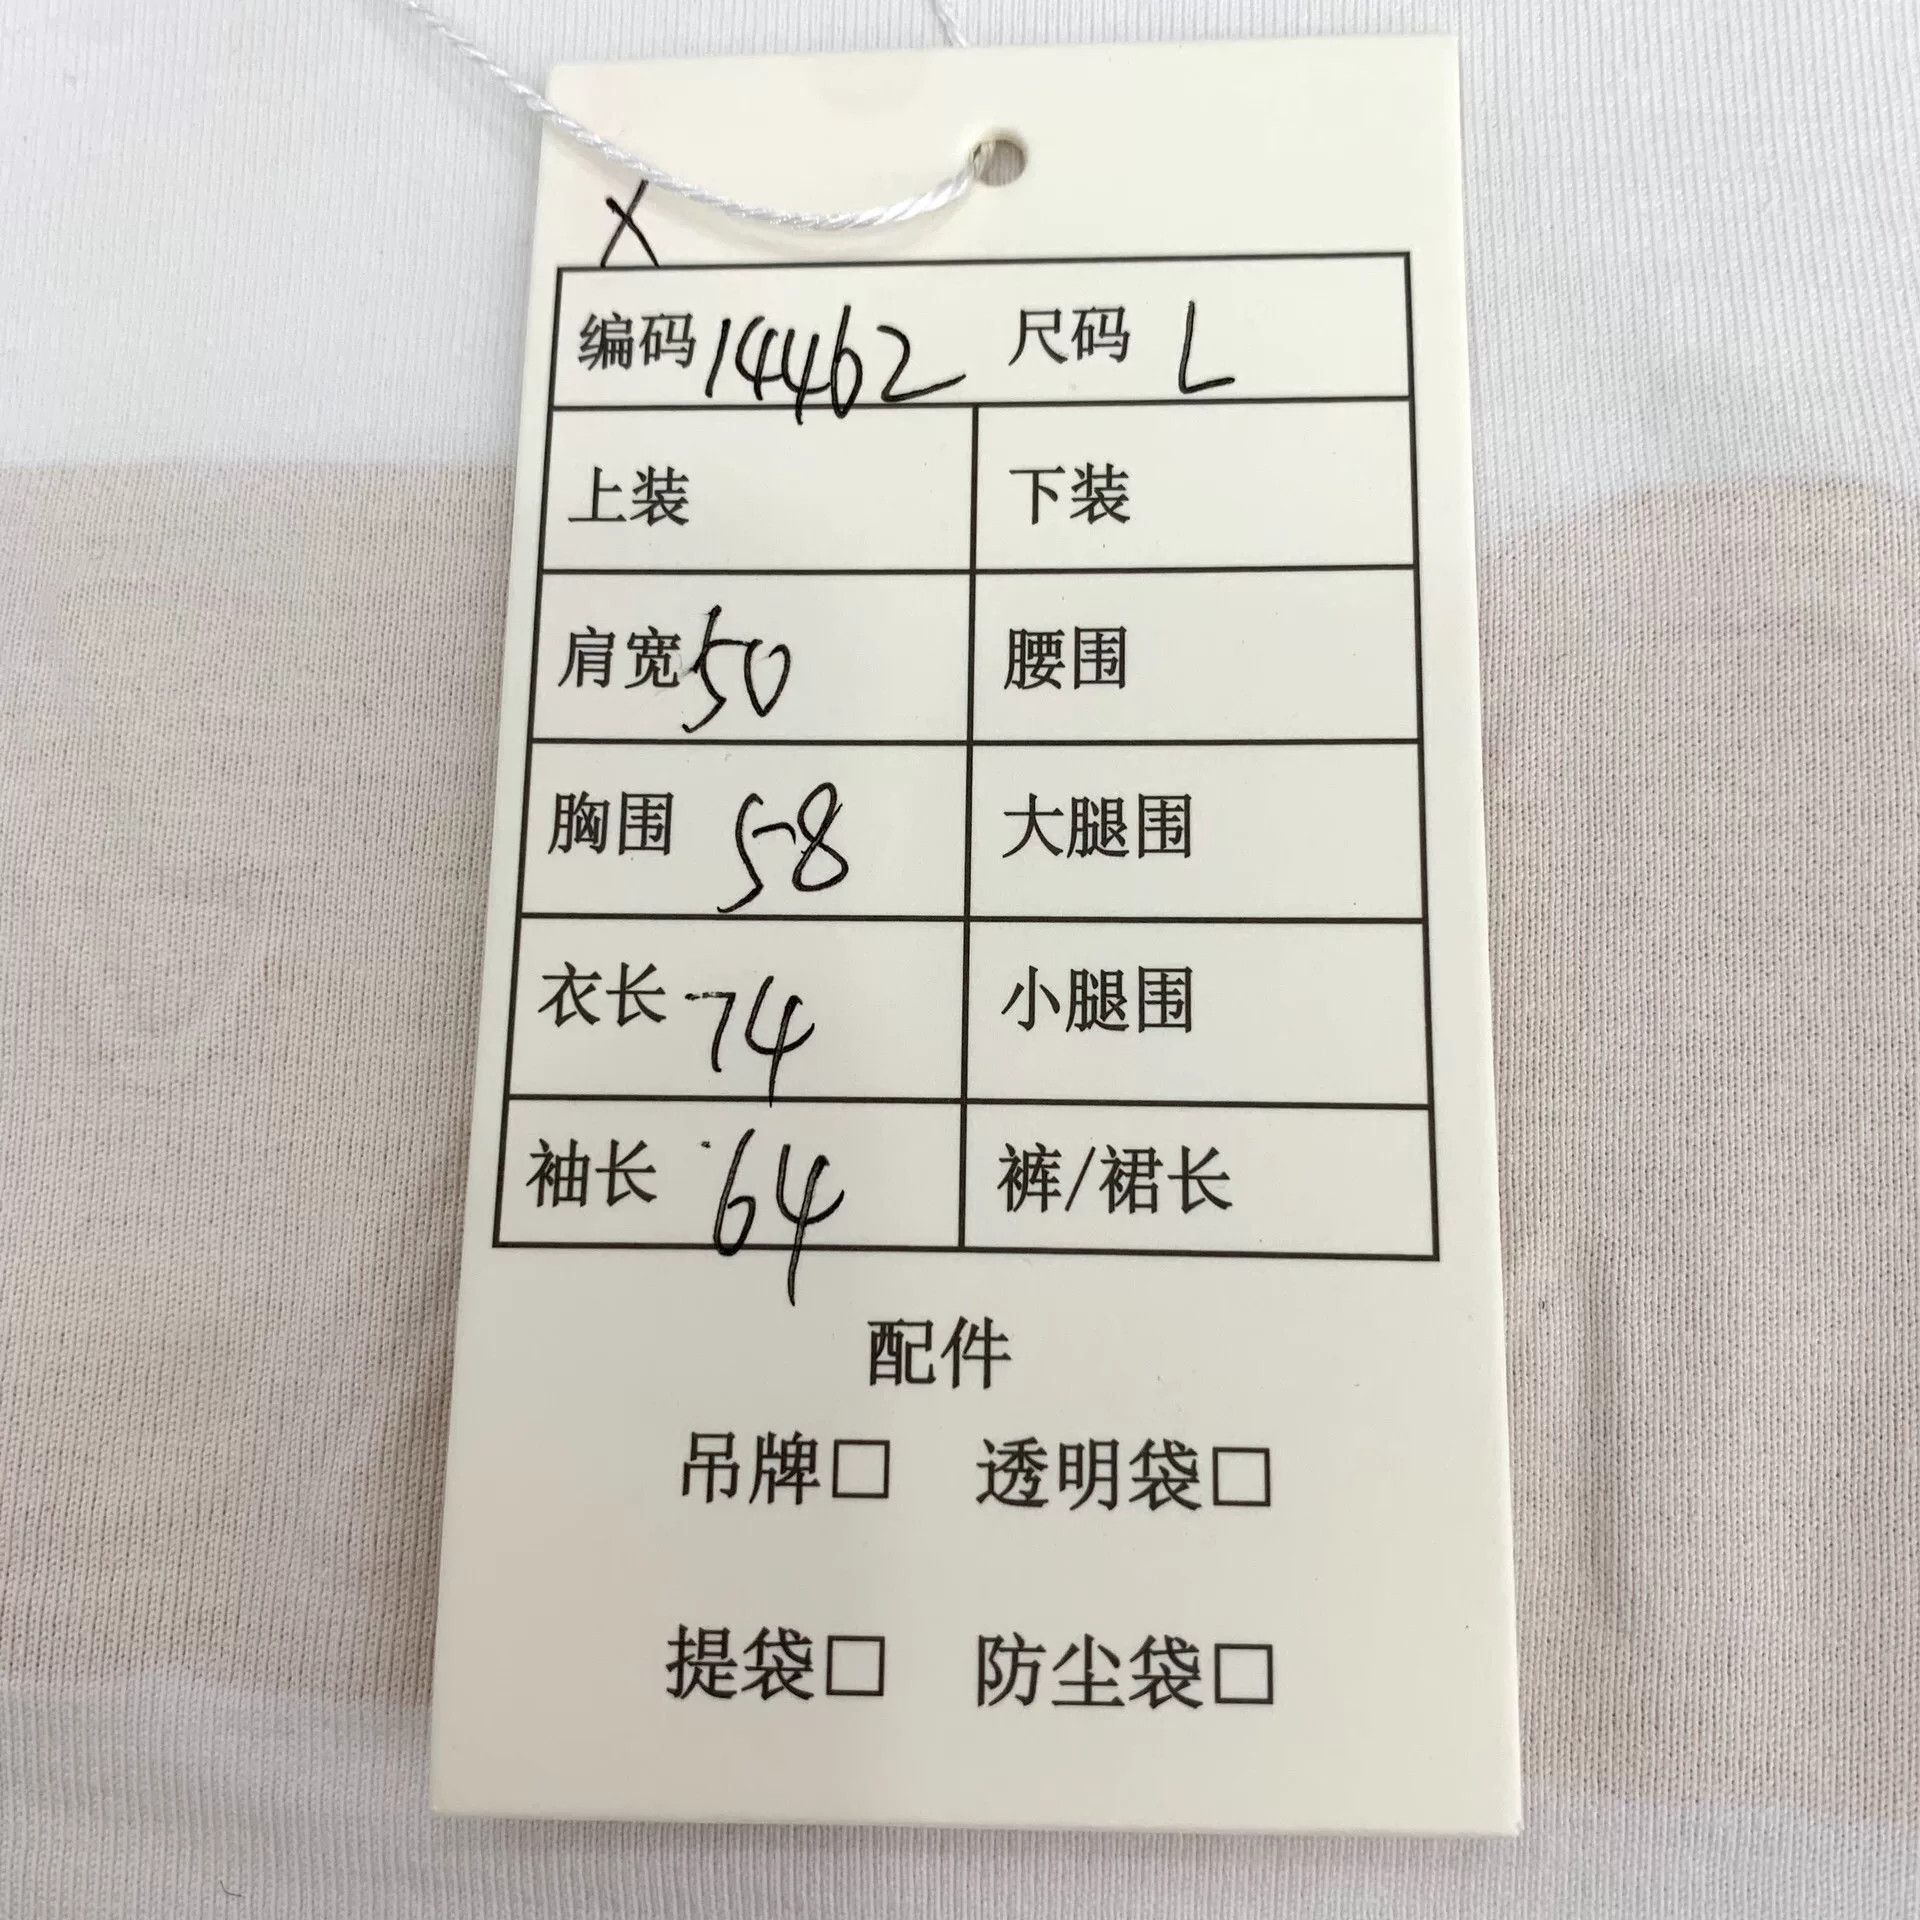 X
编码 14462 尺码 L
上装 下装
肩宽 50 腰围
胸围 58 大腿围
衣长 74 小腿围
袖长 64 裤/裙长
配件
吊牌□ 透明袋□
提袋□ 防尘袋□